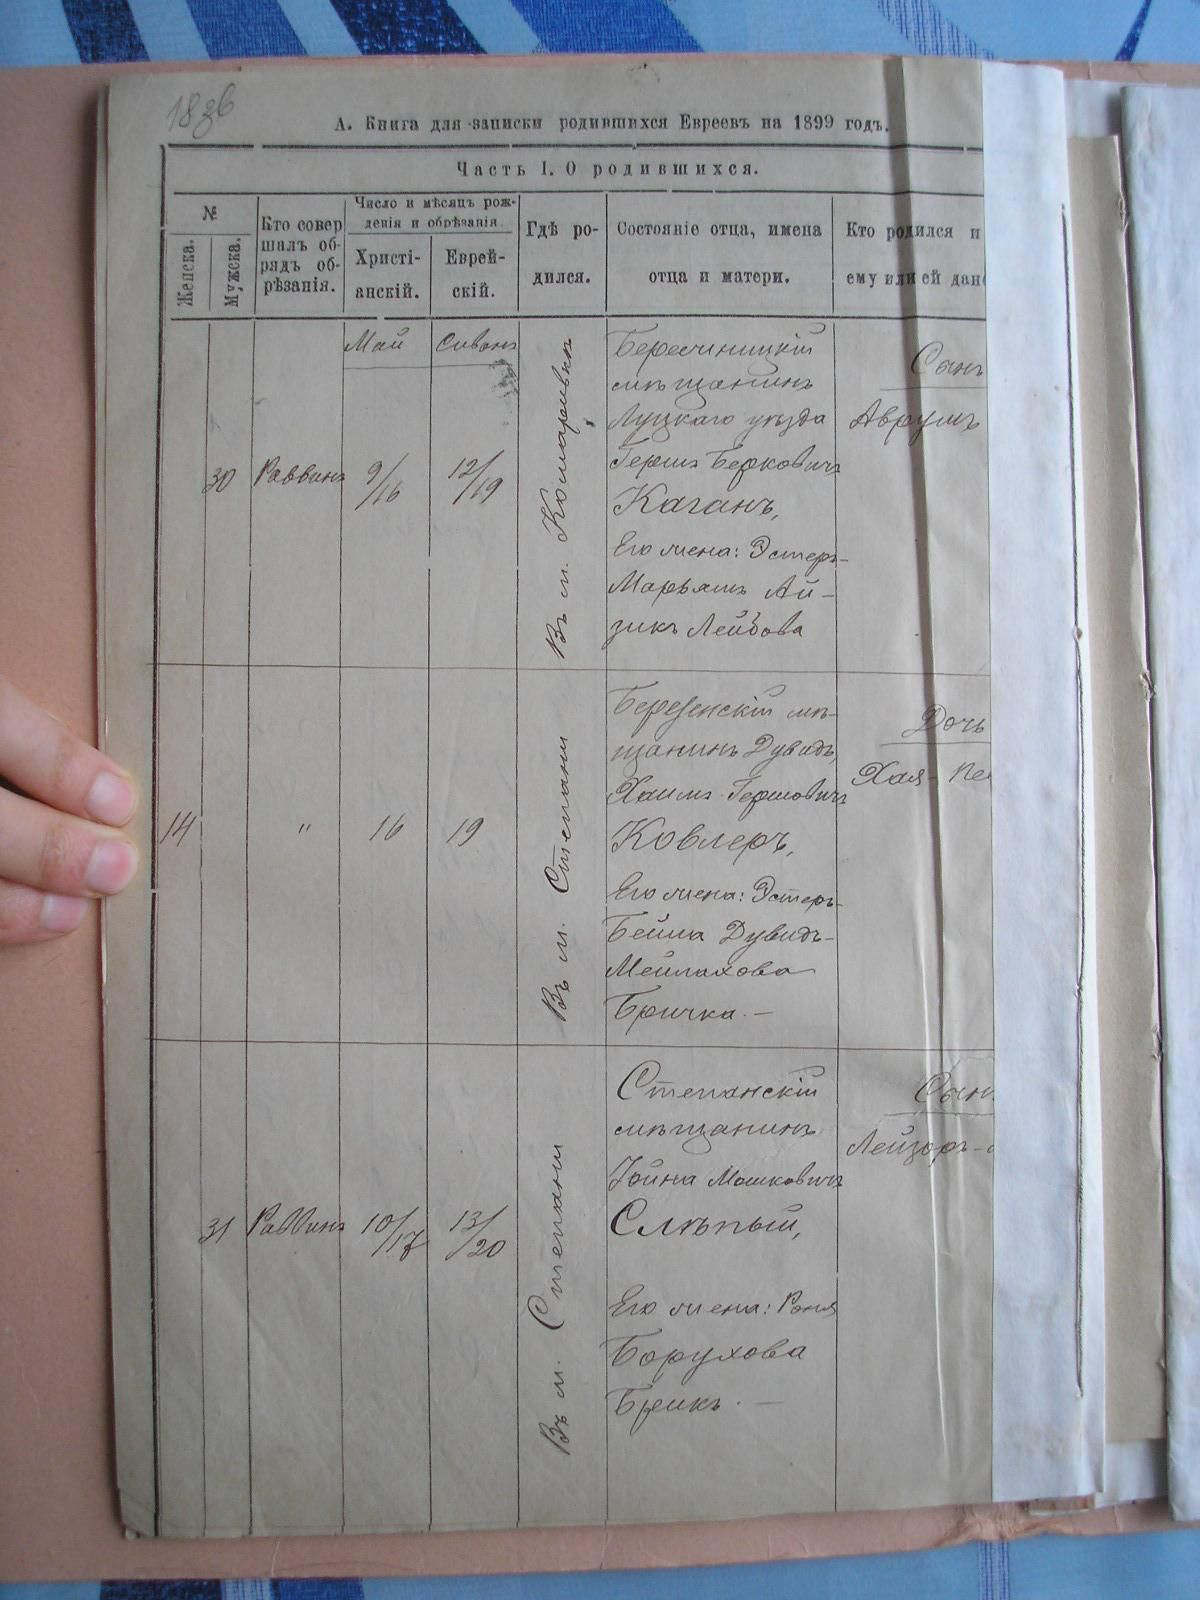 18 зв
А. Книга для записки родившихся Евреевъ на 1899 годъ.
Часть I. О родившихся.
№
Женска.
Мужска.
Кто совер
шалъ об-
рядъ об-
рѣзанія.
Число и мѣсяцъ рож-
денія и обрѣзанія.
Христі-
анскій.
Еврей-
скій.
Гдѣ ро-
дился.
Состояніе отца, имена
отца и матери.
Кто родился и
ему или ей дан
Май
Сиванъ
30
Раввинъ
9/16
12/19
Въ м.
мѣщанинъ
Луцкаго уѣзда
Гершъ Берковичъ
Каганъ,
Его жена: Эстеръ-
Марьямъ Ай-
зикъ Лейбова
Сынъ
Аврумъ
14
"
16
19
Въ м. Степани
Березенскій мѣ-
щанинъ Дувидъ,
Хаимъ Гершовичъ
Ковлеръ,
Его жена: Эстеръ-
Бейла Дувидъ-
Мейлахова
Бричка. —
Дочь
Хая-
31
Раввинъ
10/17
13/20
Въ м. Степани
Степанскій
мѣщанинъ
Іойна Мошковичъ
Слѣпый,
Его жена: Роня
Борухова
Брикъ. —
Сынъ
Лейзоръ-